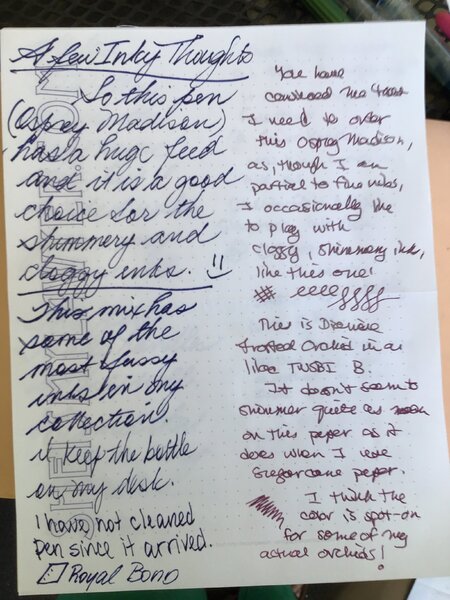 A few Inky Thoughts
So this pen
(Osprey Madison)
has a huge feed
and it is a good
choice for the
shimmery and
cloggy inks.
This mix has
some of the
most fussy
inks in my
collection.
I keep the bottle
on my desk.
I have not cleaned
pen since it arrived.
Royal Bond
You have
convinced me
I need to order
this Osprey Madison,
as, though I am
partial to fine nibs,
I occasionally like
to play with
cloggy, shimmery ink,
like this one!
This is Diamine
Frosted Orchid in a
lilac TWSBI B.
It doesn't seem to
shimmer quite as
on this paper as it
does when I use
sugarcane paper.
I think the
color is spot-on
for some of my
actual orchids!